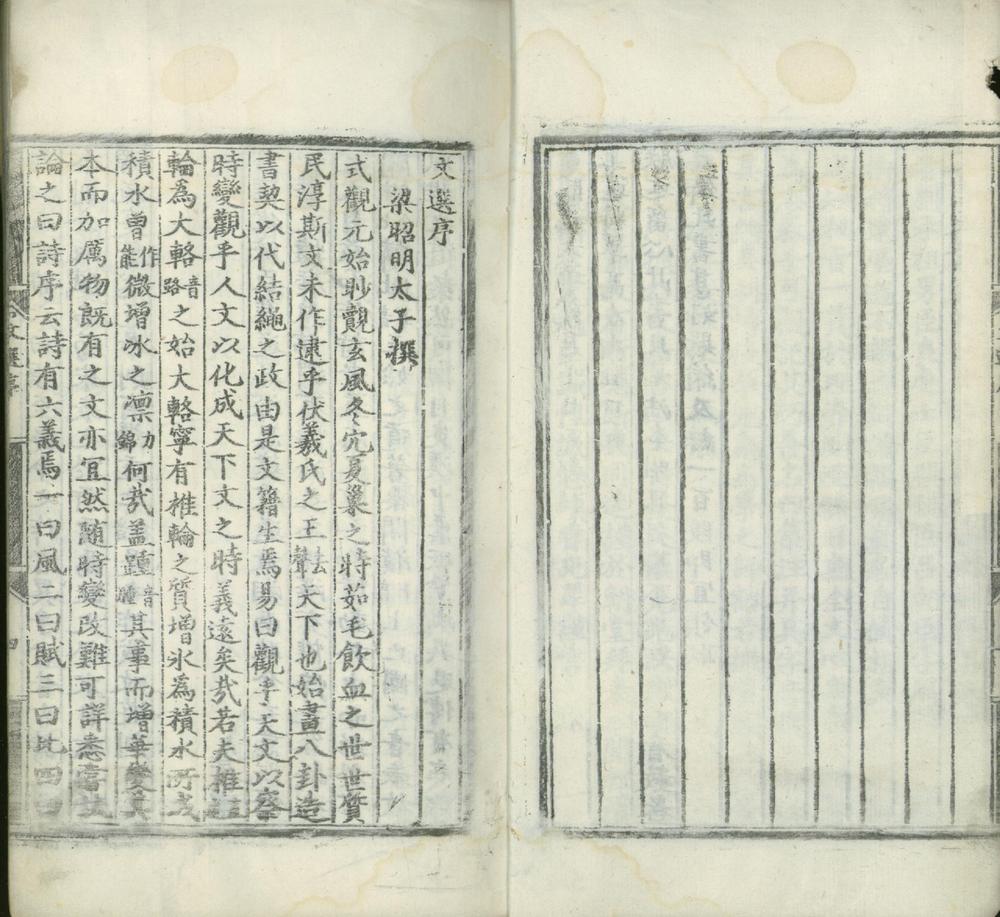 文選序
梁昭明太子撰
式觀元始眇覿玄風冬穴夏巢之時茹毛飲血之世世質
民淳斯文未作逮乎伏羲氏之王去聲天下也始畫八卦造
書契以代結繩之政由是文籍生焉易曰觀乎天文以察
時變觀乎人文以化成天下文之時義遠矣哉若夫椎
輪為大輅音路之始大輅寧有椎輪之質增氷為積水所成
積水曾作能微增冰之凛力錦何哉盖踵音腫其事而增華變其
本而加厲物既有之文亦宜然随時變改難可詳悉甞試
論之曰詩序云詩有六義焉一曰風二曰賦三曰比四曰
文選序
四